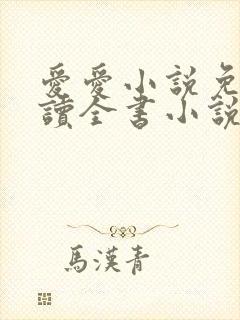 愛愛小說免
讀全書小說
馬漢青